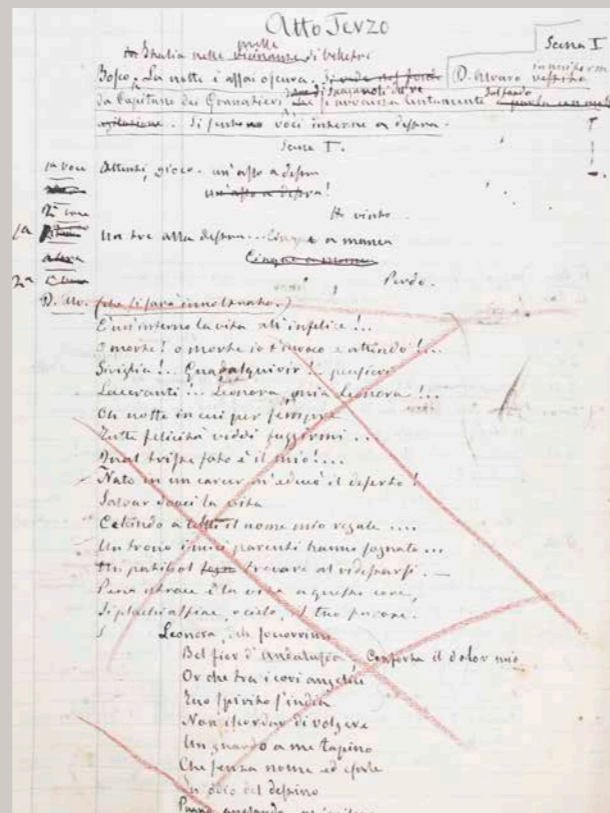 Atto Terzo
Scena I
In Italia nelle vicinanze di Velletri
Bosco. La notte è assai oscura. Si vede nel fondo D. Alvaro in uniforme vestito
da Capitano dei Granatieri Spagnoli del re si avanza lentamente
agitazione. Si sentono voci interne a destra.
Scena I.
1a voce Attenti, gioco. un'asso a destra
un'asso a destra!
2a voce Ho vinto.
1a Un tre alla destra... Cinque a manca
Cinque a manca
2a Perdo.
D. Alv. (che si sarà innoltrato.)
È un inferno la vita all'infelice!...
O morte! o morte io t'invoco e attendo!...
Siviglia!.. Guadalquivir!.. pensieri
Laceranti!... Leonora, mia Leonora!...
Oh notte in cui per sempre
Tutte felicità viddi fuggirmi...
Qual triste fato è il mio!...
Nato in un carcer m'educò il deserto!
la vita
Celando a tutti il nome mio regale....
Un trono i miei parenti hanno sognato...
Un patibol trovare al ridestarsi. —
Pena atroce è la vita a questo core,
Si plachi alfine, o cielo, il tuo furore.
Leonora, deh soccorrimi
Bel fior d'Andalusia. Conforta il dolor mio
Or che tra i cori angelici
Tuo spirito s'india
Non iscordar di volgere
Un guardo a me tapino
Che senza nome ed esule
In odio del destino
anelando